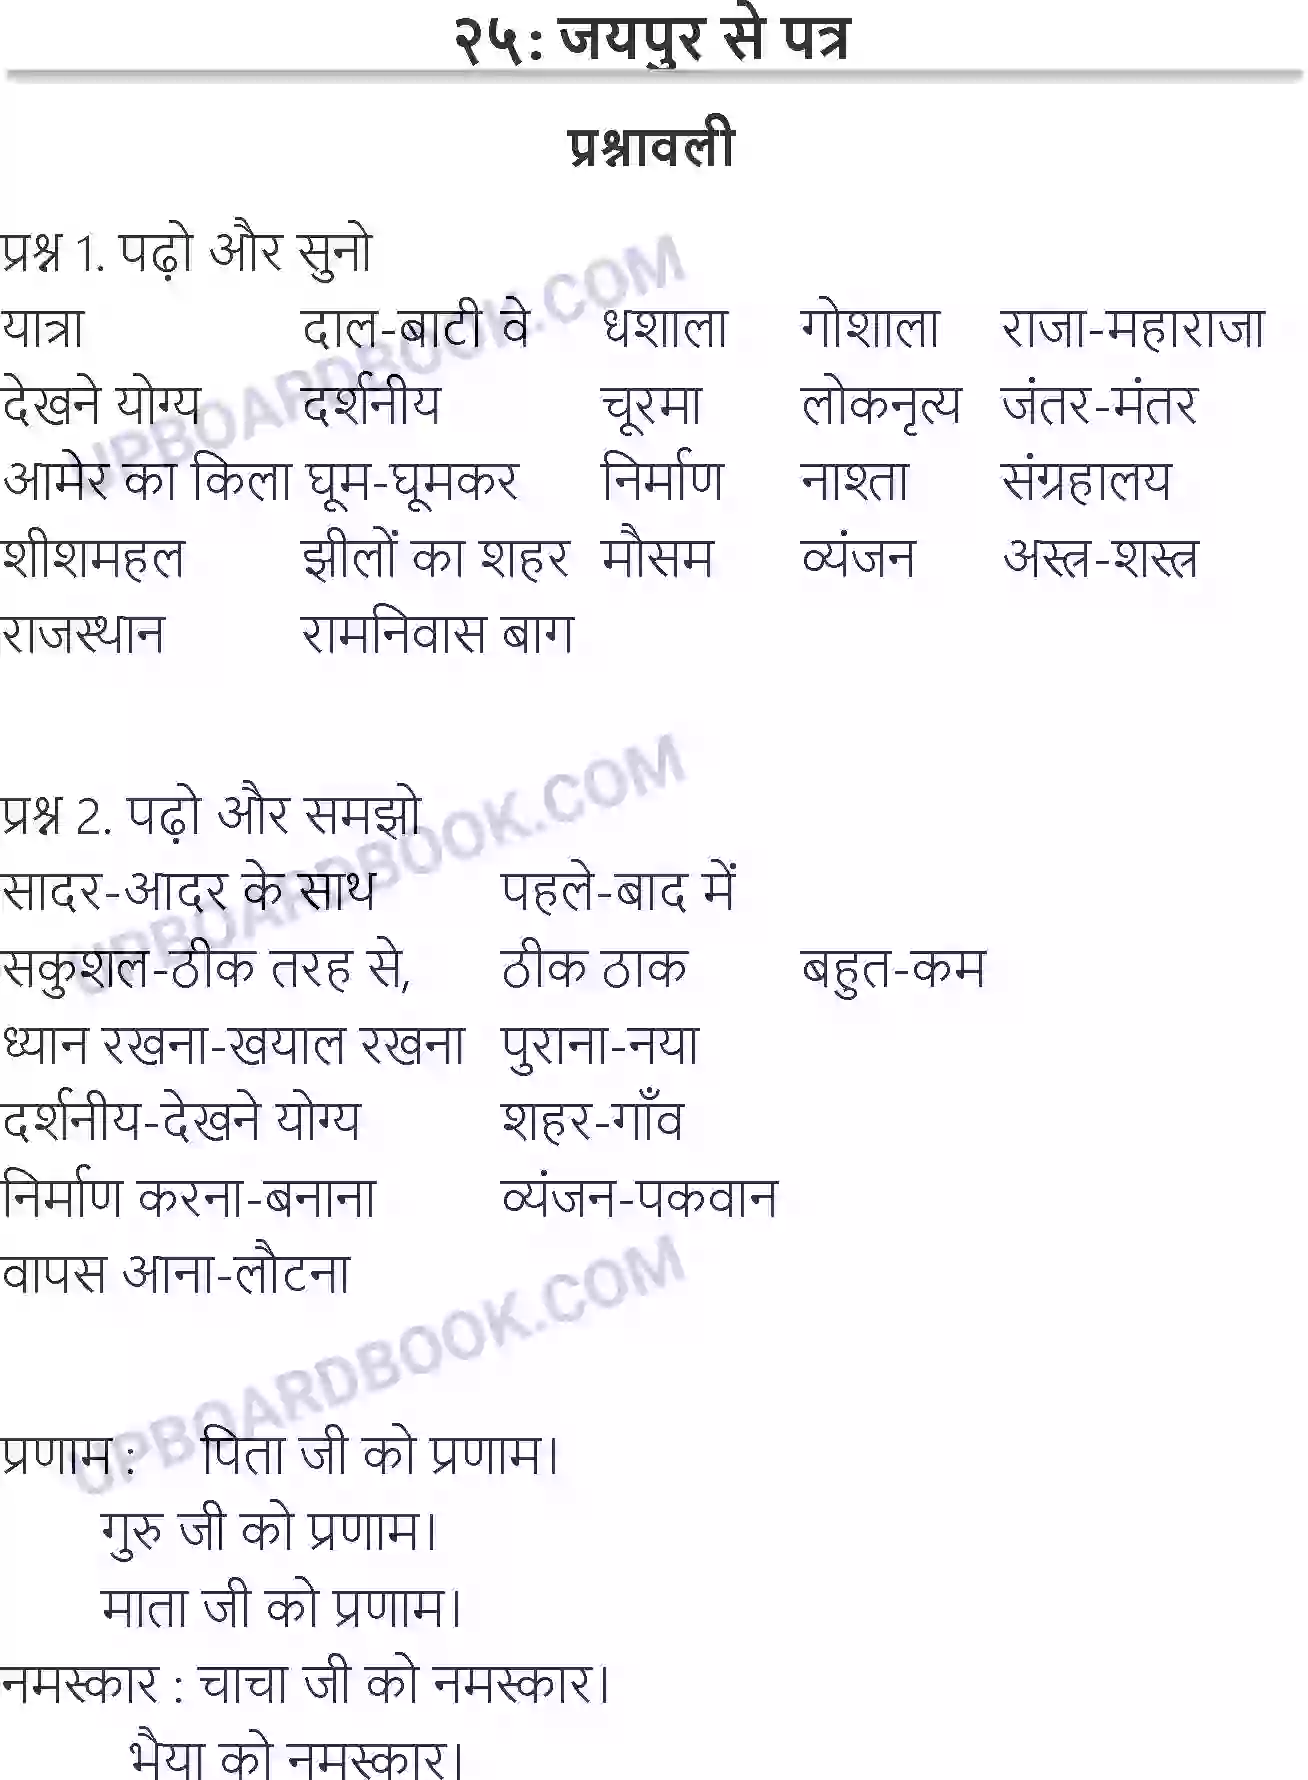 २५: जयपुर से पत्र
प्रश्नावली
प्रश्न 1. पढ़ो और सुनो
यात्रा दाल-बाटी वे धशाला गोशाला राजा-महाराजा
देखने योग्य दर्शनीय चूरमा लोकनृत्य जंतर-मंतर
आमेर का किला घूम-घूमकर निर्माण नाश्ता संग्रहालय
शीशमहल झीलों का शहर मौसम व्यंजन अस्त्र-शस्त्र
राजस्थान रामनिवास बाग
प्रश्न 2. पढ़ो और समझो
सादर-आदर के साथ पहले-बाद में
सकुशल-ठीक तरह से, ठीक ठाक बहुत-कम
ध्यान रखना-खयाल रखना पुराना-नया
दर्शनीय-देखने योग्य शहर-गाँव
निर्माण करना-बनाना व्यंजन-पकवान
वापस आना-लौटना
प्रणाम : पिता जी को प्रणाम।
गुरु जी को प्रणाम।
माता जी को प्रणाम।
नमस्कार : चाचा जी को नमस्कार।
भैया को नमस्कार।
UPBOARDBOOK.COM
UPBOARDBOOK.COM
UPBOARDBOOK.COM